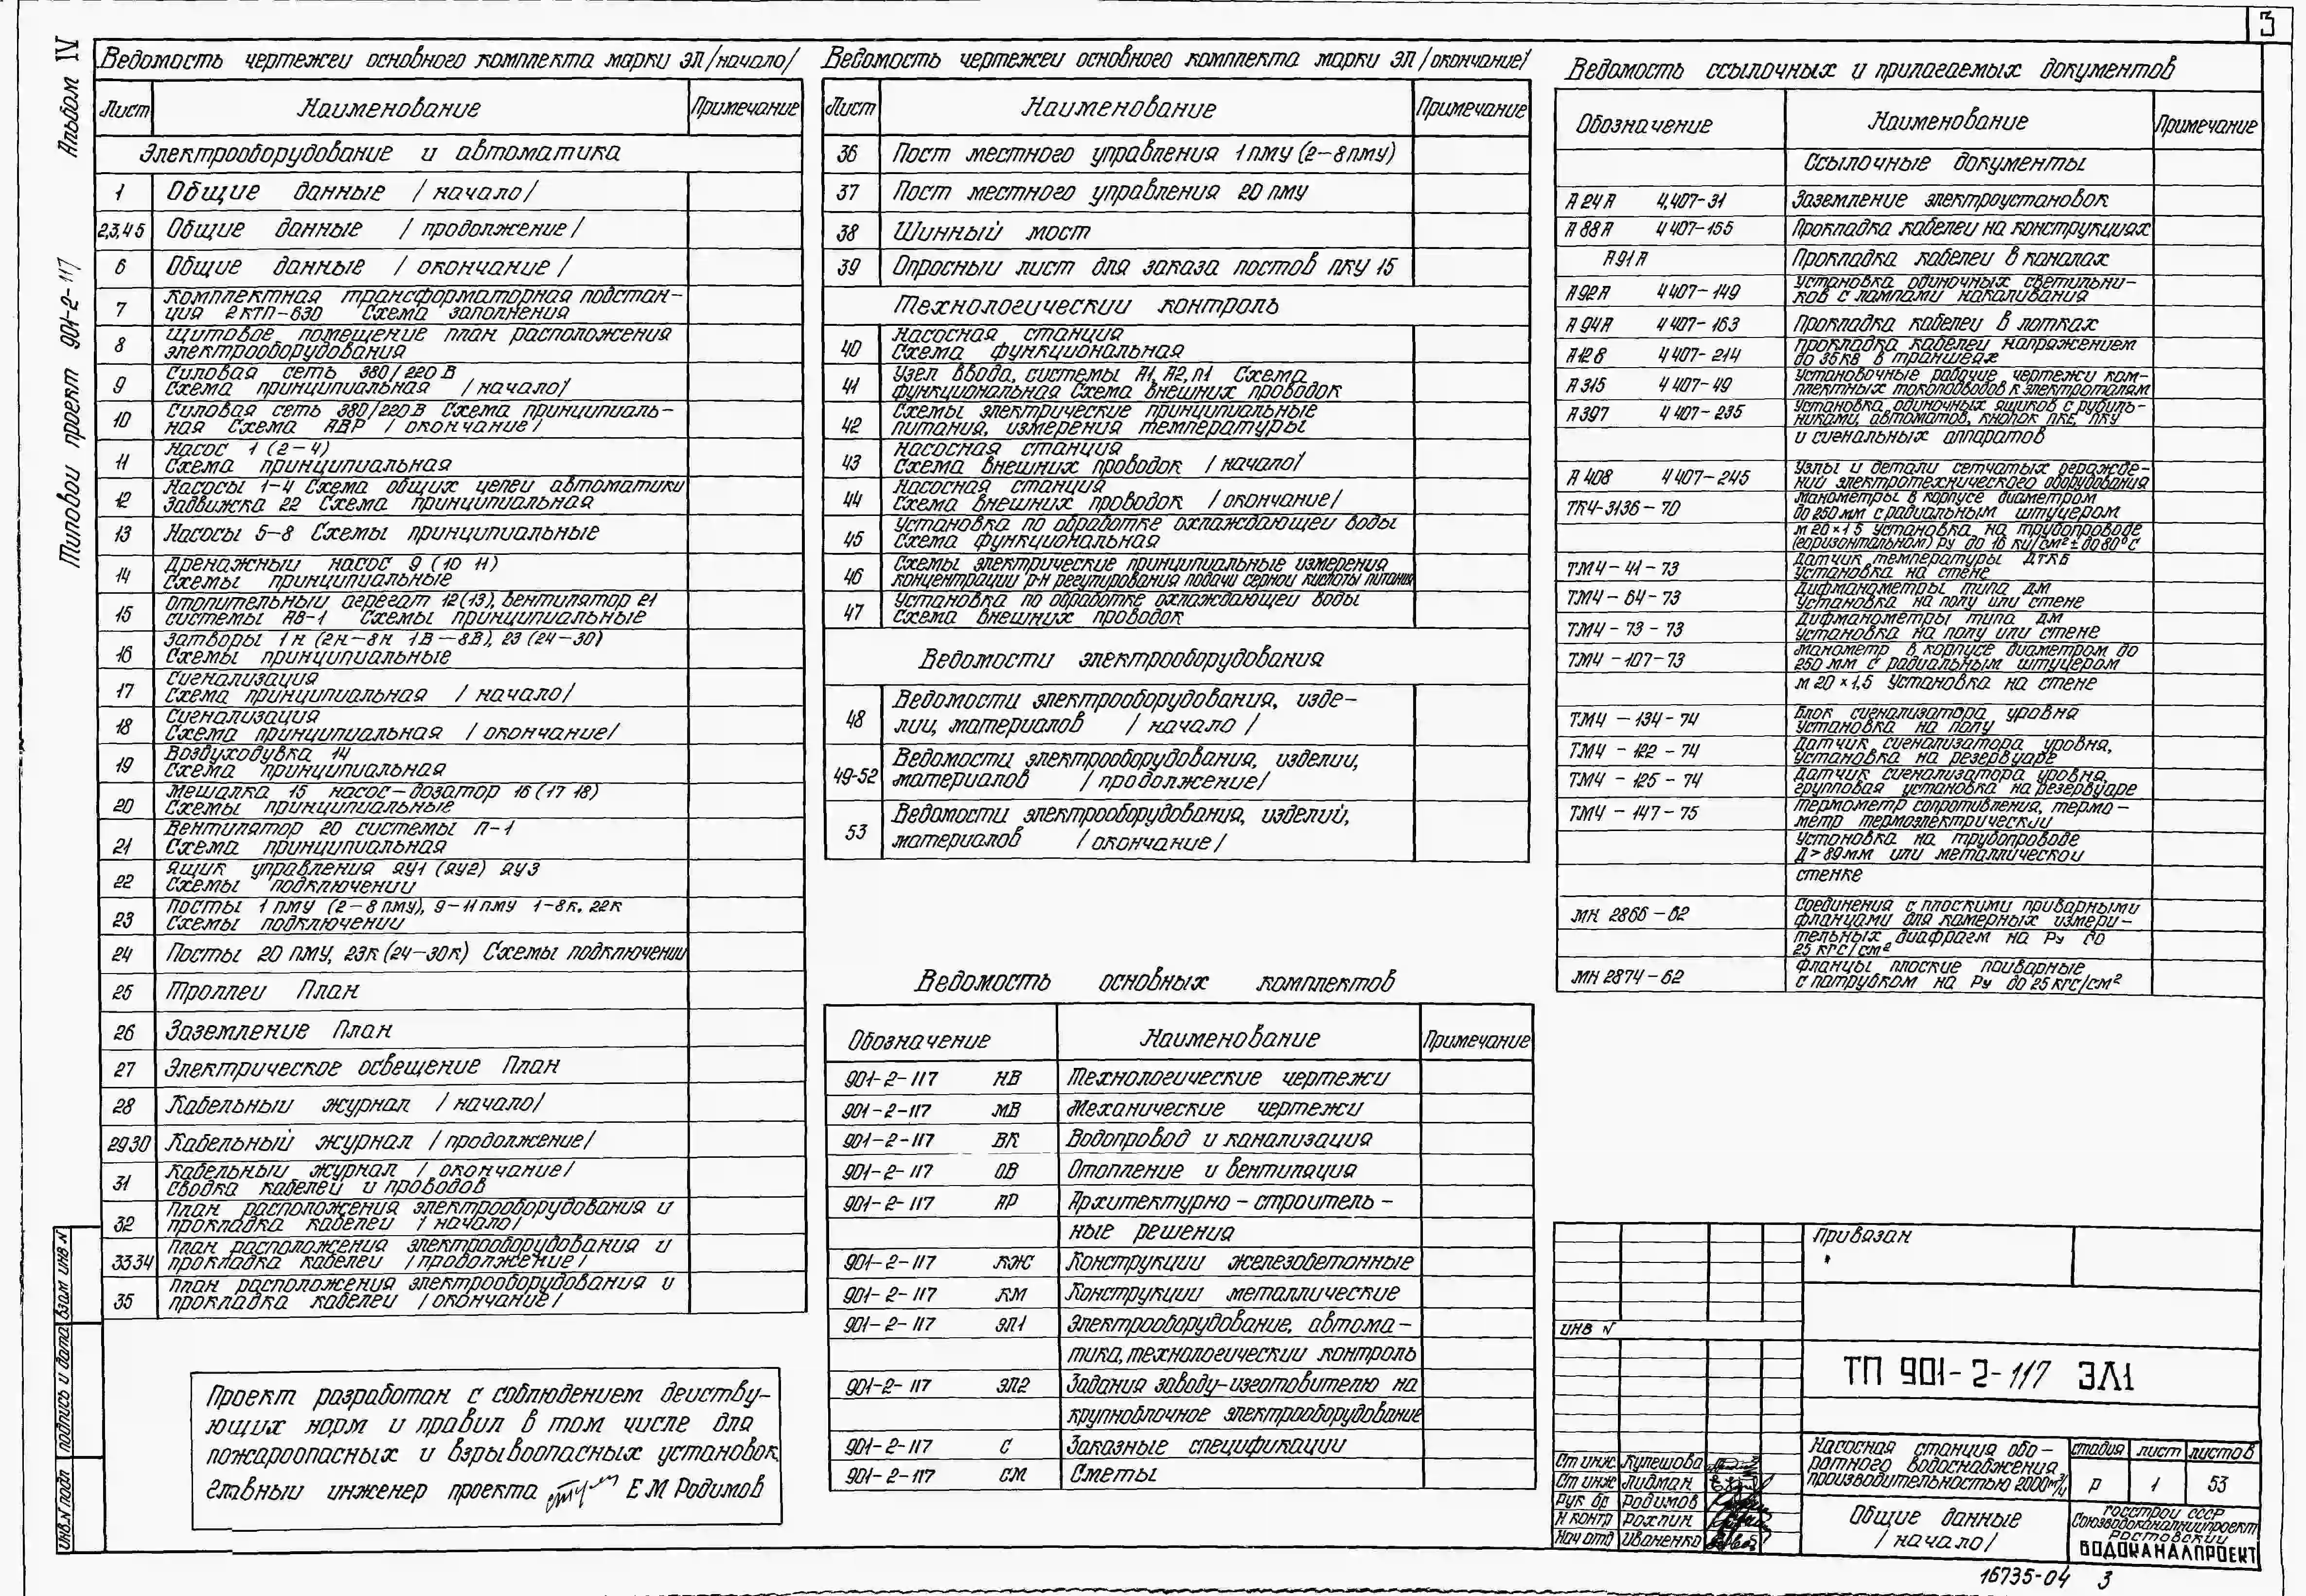 3
Альбом IV
Типовой проект 901-2-117
Ведомость чертежей основного комплекта марки ЭЛ /начало/
Лист Наименование Примечание
Электрооборудование и автоматика
1 Общие данные /начало/
2,3,4 5 Общие данные /продолжение/
6 Общие данные /окончание/
7 Комплектная трансформаторная подстан-
ция 2КТП-630 Схема заполнения
8 Щитовое помещение план расположения
электрооборудования
9 Силовая сеть 380/220 В
Схема принципиальная /начало/
10 Силовая сеть 380/220 В Схема принципиаль-
ная Схема АВР /окончание/
11 Насос 1 (2-4)
Схема принципиальная
12 Насосы 1-4 Схема общих цепей автоматики
Задвижка 22 Схема принципиальная
13 Насосы 5-8 Схемы принципиальные
14 Дренажный насос 9 (10 11)
Схемы принципиальные
15 Отопительный агрегат 12(13), вентилятор 21
системы АВ-1 Схемы принципиальные
16 Затворы 1н (2н-8н 1В-8В), 23 (24-30)
Схемы принципиальные
17 Сигнализация
Схема принципиальная /начало/
18 Сигнализация
Схема принципиальная /окончание/
19 Воздуходувка 14
Схема принципиальная
20 Мешалка 15 насос-дозатор 16 (17 18)
Схемы принципиальные
21 Вентилятор 20 системы П-1
Схема принципиальная
22 Ящик управления ЯУ1 (ЯУ2) ЯУ3
Схемы подключений
23 Посты 1 ПМУ (2-8 ПМУ), 9-11 ПМУ 1-8К, 22К
Схемы подключений
24 Посты 20 ПМУ, 23К (24-30К) Схемы подключений
25 Троллеи План
26 Заземление План
27 Электрическое освещение План
28 Кабельный журнал /начало/
29 30 Кабельный журнал /продолжение/
31 Кабельный журнал /окончание/
Сводка кабелей и проводов
32 План расположения электрооборудования и
прокладка кабелей /начало/
33 34 План расположения электрооборудования и
прокладка кабелей /продолжение/
35 План расположения электрооборудования и
прокладка кабелей /окончание/
Проект разработан с соблюдением действу-
ющих норм и правил в том числе для
пожароопасных и взрывоопасных установок.
Главный инженер проекта Е М Родимов
Ведомость чертежей основного комплекта марки ЭЛ /окончание/
Лист Наименование Примечание
36 Пост местного управления 1 ПМУ (2-8 ПМУ)
37 Пост местного управления 20 ПМУ
38 Шинный мост
39 Опросный лист для заказа постов ПКУ 15
Технологический контроль
40 Насосная станция
Схема функциональная
41 Узел ввода, системы А1, А2, П1 Схема
функциональная Схема внешних проводок
42 Схемы электрические принципиальные
питания, измерения температуры
43 Насосная станция
Схема внешних проводок /начало/
44 Насосная станция
Схема внешних проводок /окончание/
45 Установка по обработке охлаждающей воды
Схема функциональная
46 Схемы электрические принципиальные измерения
концентрации р-н регулирования подачи серной кислоты питания
47 Установка по обработке охлаждающей воды
Схема внешних проводок
Ведомости электрооборудования
48 Ведомости электрооборудования, изде-
лий, материалов /начало/
49-52 Ведомости электрооборудования, изделий,
материалов /продолжение/
53 Ведомости электрооборудования, изделий,
материалов /окончание/
Ведомость основных комплектов
Обозначение Наименование Примечание
901-2-117 НВ Технологические чертежи
901-2-117 МВ Механические чертежи
901-2-117 ВК Водопровод и канализация
901-2-117 ОВ Отопление и вентиляция
901-2-117 АР Архитектурно-строитель-
ные решения
901-2-117 КЖ Конструкции железобетонные
901-2-117 КМ Конструкции металлические
901-2-117 ЭЛ1 Электрооборудование, автома-
тика, технологический контроль
901-2-117 ЭЛ2 Задания заводу-изготовителю на
крупноблочное электрооборудование
901-2-117 С Заказные спецификации
901-2-117 СМ Сметы
Ведомость ссылочных и прилагаемых документов
Обозначение Наименование Примечание
Ссылочные документы
А 24 А 4,407-31 Заземление электроустановок
А 88 А 4 407-155 Прокладка кабелей на конструкциях
А 91 А Прокладка кабелей в каналах
А 92 А 4 407-149 Установка одиночных светильни-
ков с лампами накаливания
А 94 А 4 407-163 Прокладка кабелей в лотках
А 128 4 407-214 Прокладка кабелей напряжением
до 35 кВ в траншеях
А 315 4 407-49 Установочные рабочие чертежи ком-
плектных токоподводов к электроталям
А 397 4 407-235 Установка одиночных ящиков с рубиль-
никами, автоматов, кнопок ПКЕ, ПКУ
и сигнальных аппаратов
А 408 4 407-245 Узлы и детали сетчатых огражде-
ний электротехнического оборудования
ТК4-3136-70 Манометры в корпусе диаметром
до 250 мм с радиальным штуцером
М 20×1 5 Установка на трубопроводе
(горизонтальном) Ру до 16 кг/см² t до 80°С
ТМ4-41-73 Датчик температуры ДТКБ
Установка на стене
ТМ4-64-73 Дифманометры типа ДМ
Установка на полу или стене
ТМ4-73-73 Дифманометры типа ДМ
Установка на полу или стене
ТМ4-107-73 Манометр в корпусе диаметром до
250 мм с радиальным штуцером
М 20×1,5 Установка на стене
ТМ4-134-74 Блок сигнализатора уровня
Установка на полу
ТМ4-122-74 Датчик сигнализатора уровня,
установка на резервуаре
ТМ4-125-74 Датчик сигнализатора уровня,
групповая установка на резервуаре
ТМ4-147-75 Термометр сопротивления, термо-
метр термоэлектрический
Установка на трубопроводе
Д > 89 мм или металлической
стенке
МН 2866-62 Соединения с плоскими приварными
фланцами для камерных измери-
тельных диафрагм на Ру до
25 кгс/см²
МН 2874-62 Фланцы плоские приварные
с патрубком на Ру до 25 кгс/см²
Привязан
ИНВ №
ТП 901-2-117 ЭЛ1
Насосная станция обо-
ротного водоснабжения
производительностью 2000 м³/ч
Стадия Лист Листов
Р 1 53
Общие данные
/начало/
Госстрой СССР
Союзводоканалниипроект
Ростовский
ВОДОКАНАЛПРОЕКТ
Ст инж Кулешова
Ст инж Лидман
Рук бр Родимов
Н контр Рохлин
Нач отд Иваненко
Взам инв №
Подпись и дата
Инв. № подл
16735-04 3